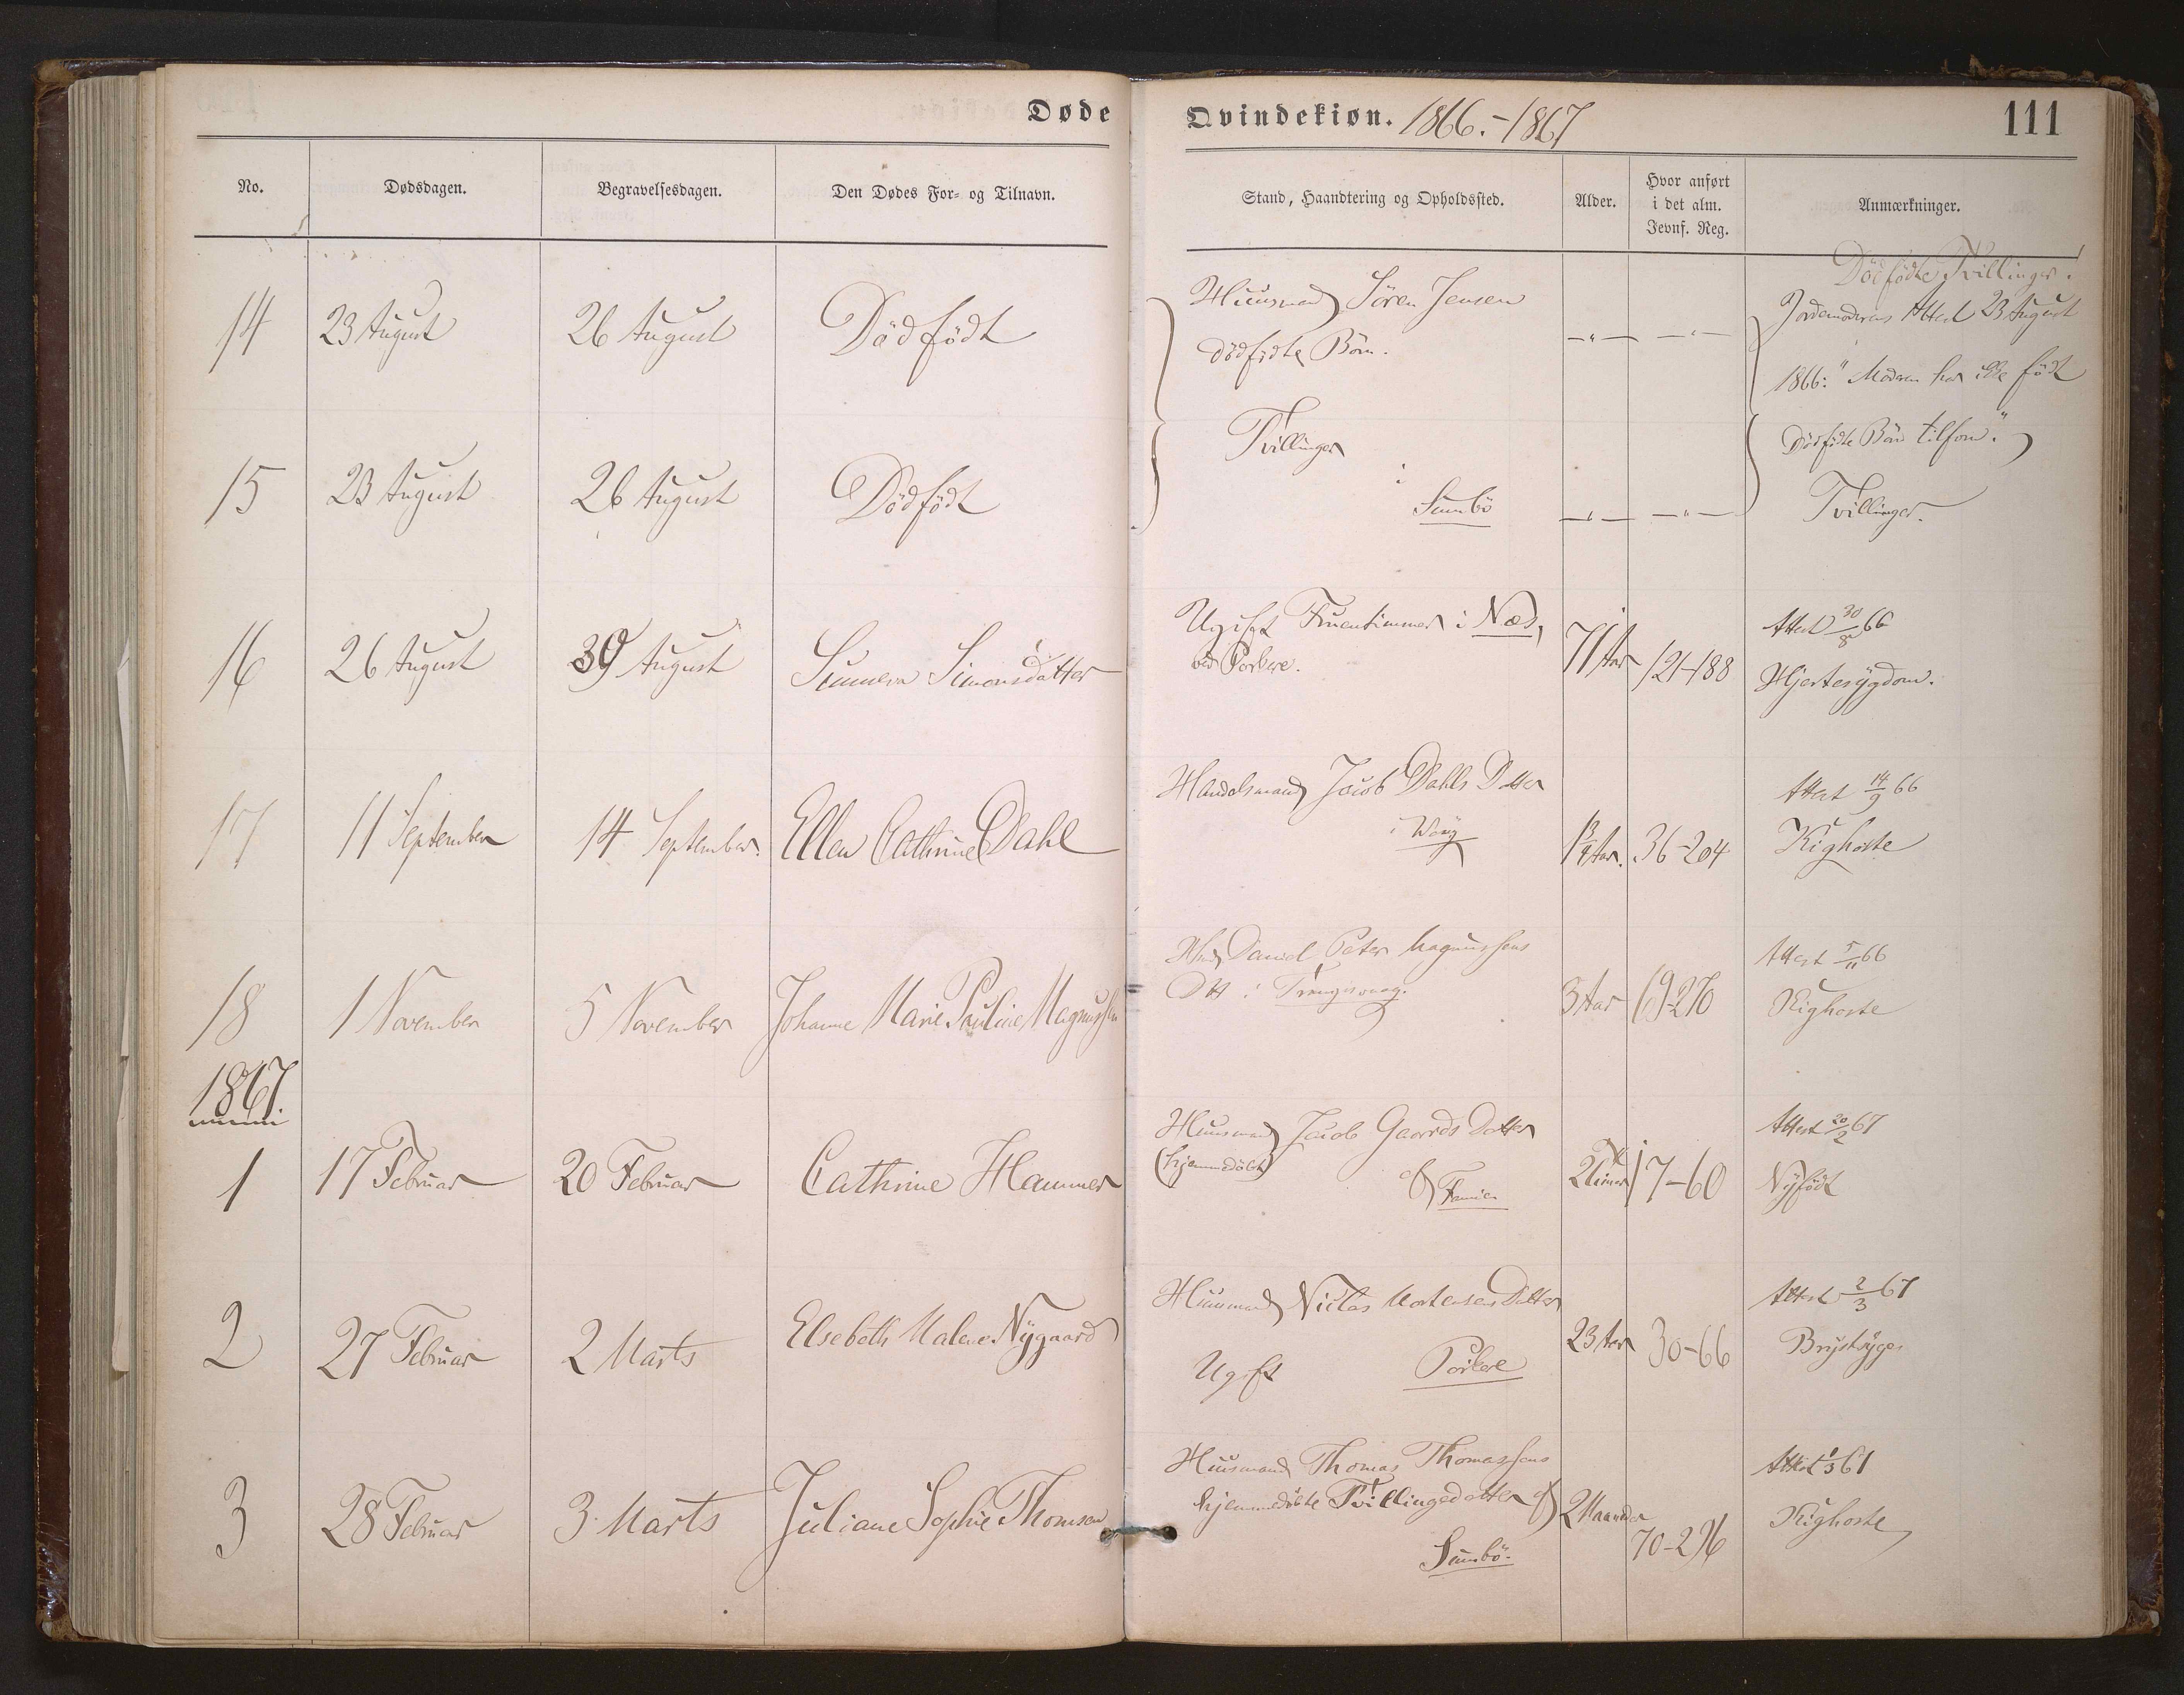 Døde Qvindekiøn. 1866.-1867
111
No.
Dødsdagen.
Begravelsesdagen.
Den Dødes For- og Tilnavn.
Stand, Haandtering og Opholdssted.
Alder.
Hvor anført
i det alm.
Jevnf. Reg.
Anmærkninger.
14
23 August
26 August
Dödfödt
Huusmand Sören Jensen
dödfödte Börn.
— " —
— " —
Dödfödte Tvillinger.
Jordemoderens Attest 23 August
1866: "Moderen har ikke födt
Tvillinger
dödfödte Börn tilforn."
15
23 August
26 August
Dödfödt
i
Sumbö
— " —
— " —
Tvillinger.
16
26 August
30 August
Sunneva Simonsdatter
Ugift Fruentimmer i Næs,
ved Porkere.
71 Aar
121-188
Attest 30/8 66
Hjertesygdom.
17
11 September
14 September.
Ellen Cathrine Dahl
Handelsmand Jacob Dahls Datter
i Waag
1 3/4 Aar.
36-204
Attest 14/9 66
Kighoste
18
1 November
5 November
Johanne Marie Pauline Magnussen
Daniel Peter Magnussens
Dtt i Trangisvaag.
3 Aar
69-276
Attest 5/11 66
Kighoste
1867.
1
17 Februar
20 Februar
Cathrine Hammer
Huusmand Jacob Gaards Datter
(hjemmedöbt)
af Famien
2 Timer
17-60
Attest 20/2 67
Nyfödt
2
27 Februar
2 Marts
Elsebeth Malene Nygaard
Huusmand Niclas Mortensens Datter
Ugift
Porkere
23 Aar
30-66
Attest 2/3 67
Brystsyge
3
28 Februar
3 Marts
Juliane Sophie Thomsen
Huusmand Thomas Thomassens
hjemmedöbte Tvillingedatter af
Sumbö.
2 Maaneder
70-296
Attest 1/3 67
Kighoste